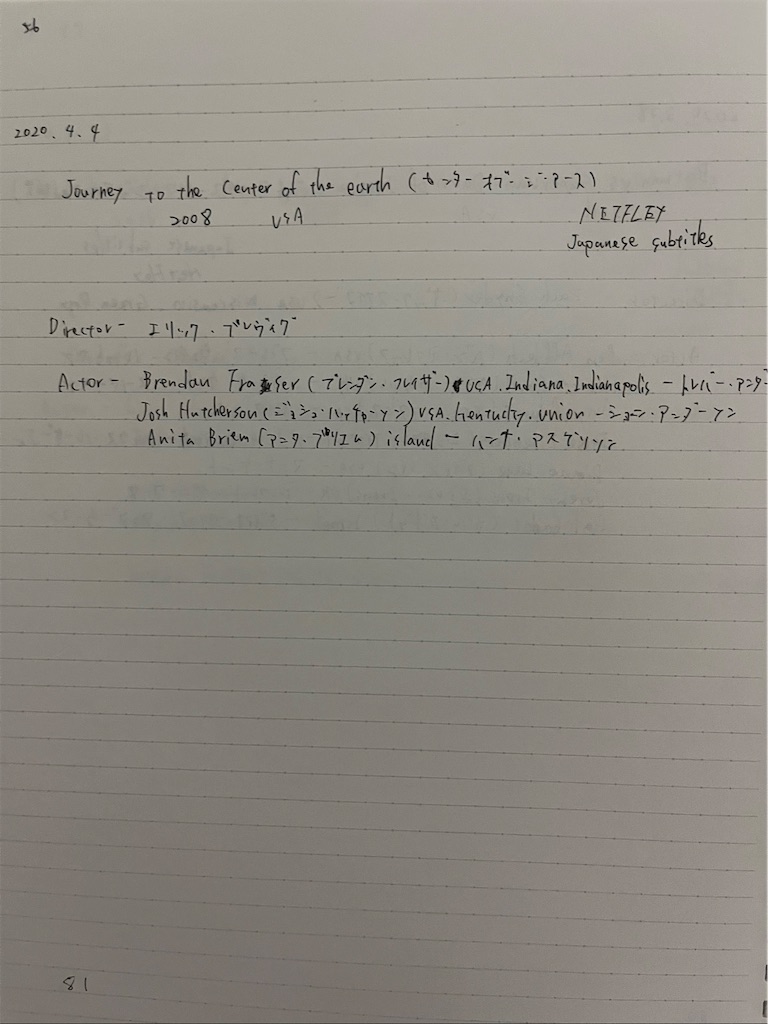 56
2020.4.4
Journey to the Center of the earth (センター・オブ・ジ・アース)
2008 USA NETFLEX
Japanese subtitles
Director - エリック・ブレヴィグ
Actor - Brendan Fraser (ブレンダン・フレイザー) USA. Indiana. Indianapolis - トレバー・アンダ-
Josh Hutcherson (ジョシュ・ハッチャーソン) USA. Kentucky. union - ショーン・アンダーソン
Anita Briem (アニタ・ブリエム) island - ハンナ・アスゲリソン
81